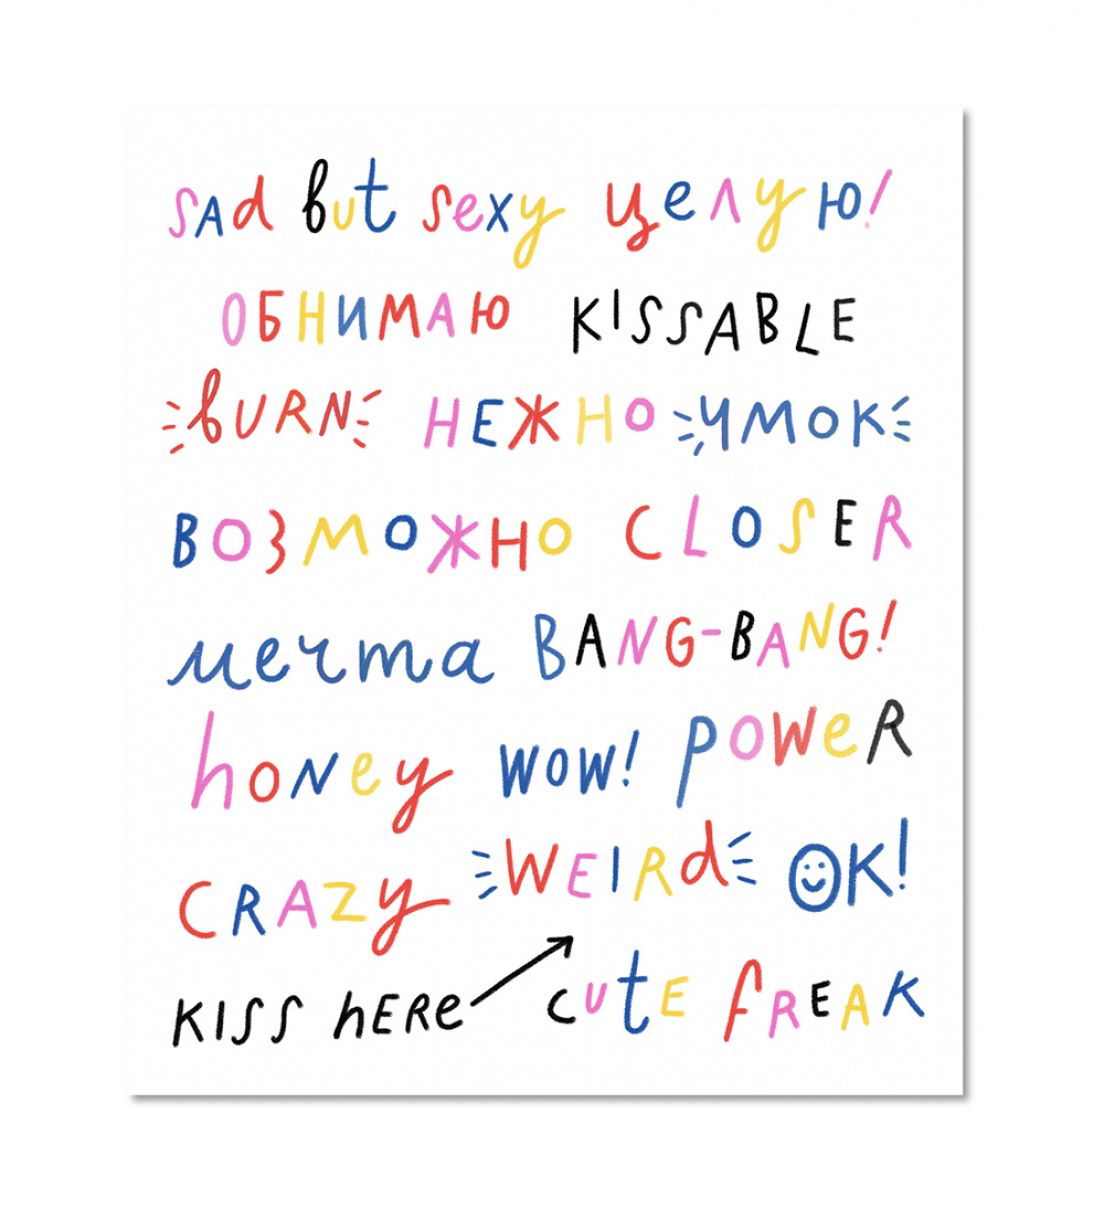 SAd but sexy целую!
ОБНИМАЮ KISSABLE
bURN НЕЖНО ЧМОК
ВОЗМОЖНО CLOSER
мечта BANG-BANG!
hoNey WOW! POWeR
CRAZy WEIRd OK!
KISS hERe CUtE fREAK